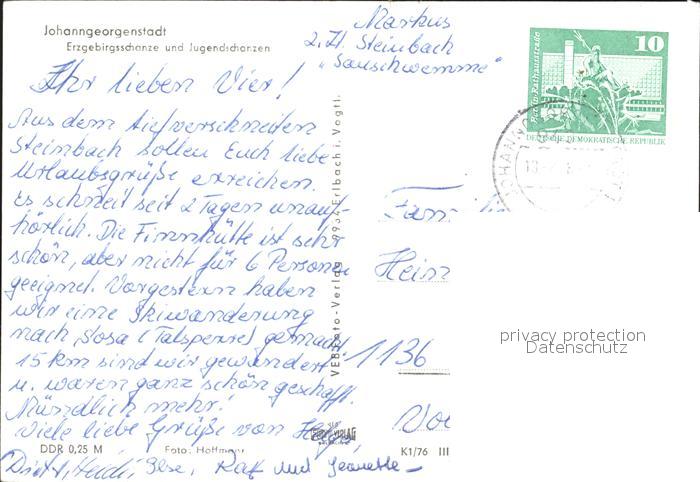 Johanngeorgenstadt
Erzgebirgsschanze und Jugendschanzen
Markus
z. Zt. Steinbach
"Sauschwemme"
10
Berlin-Rathausstraße
DEUTSCHE DEMOKRATISCHE REPUBLIK
Ihr lieben Vier!
Aus dem tiefverschneiten
Steinbach sollen Euch liebe
Urlaubsgrüße erreichen.
Es schneit seit 2 Tagen unauf-
hörlich. Die Finnhütte ist sehr
schön, aber nicht für 6 Personen
geeignet. Vorgestern haben
wir eine Skiwanderung
nach Sosa (Talsperre) gemacht
15 km sind wir gewandert
u. waren ganz schön geschafft.
Mündlich mehr!
Viele liebe Grüße von
Heidi, Ilse, Ralf und Jeanette
VEB Foto-Verlag 9934 Erlbach i. Vogtl.
Fam.
Hein
1136
privacy protection
Datenschutz
DDR 0,25 M
Foto: Hoffmann
K1/76 III